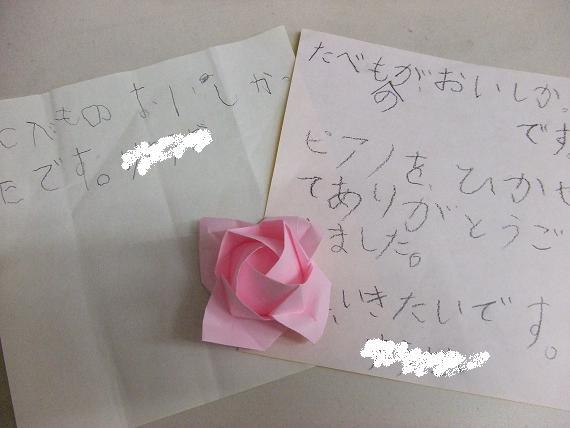 べもの おいしかっ
です。
たべもがおいしかっ
の
です。
ピアノを ひかせ
てありがとうご
ました。
いきたいです。